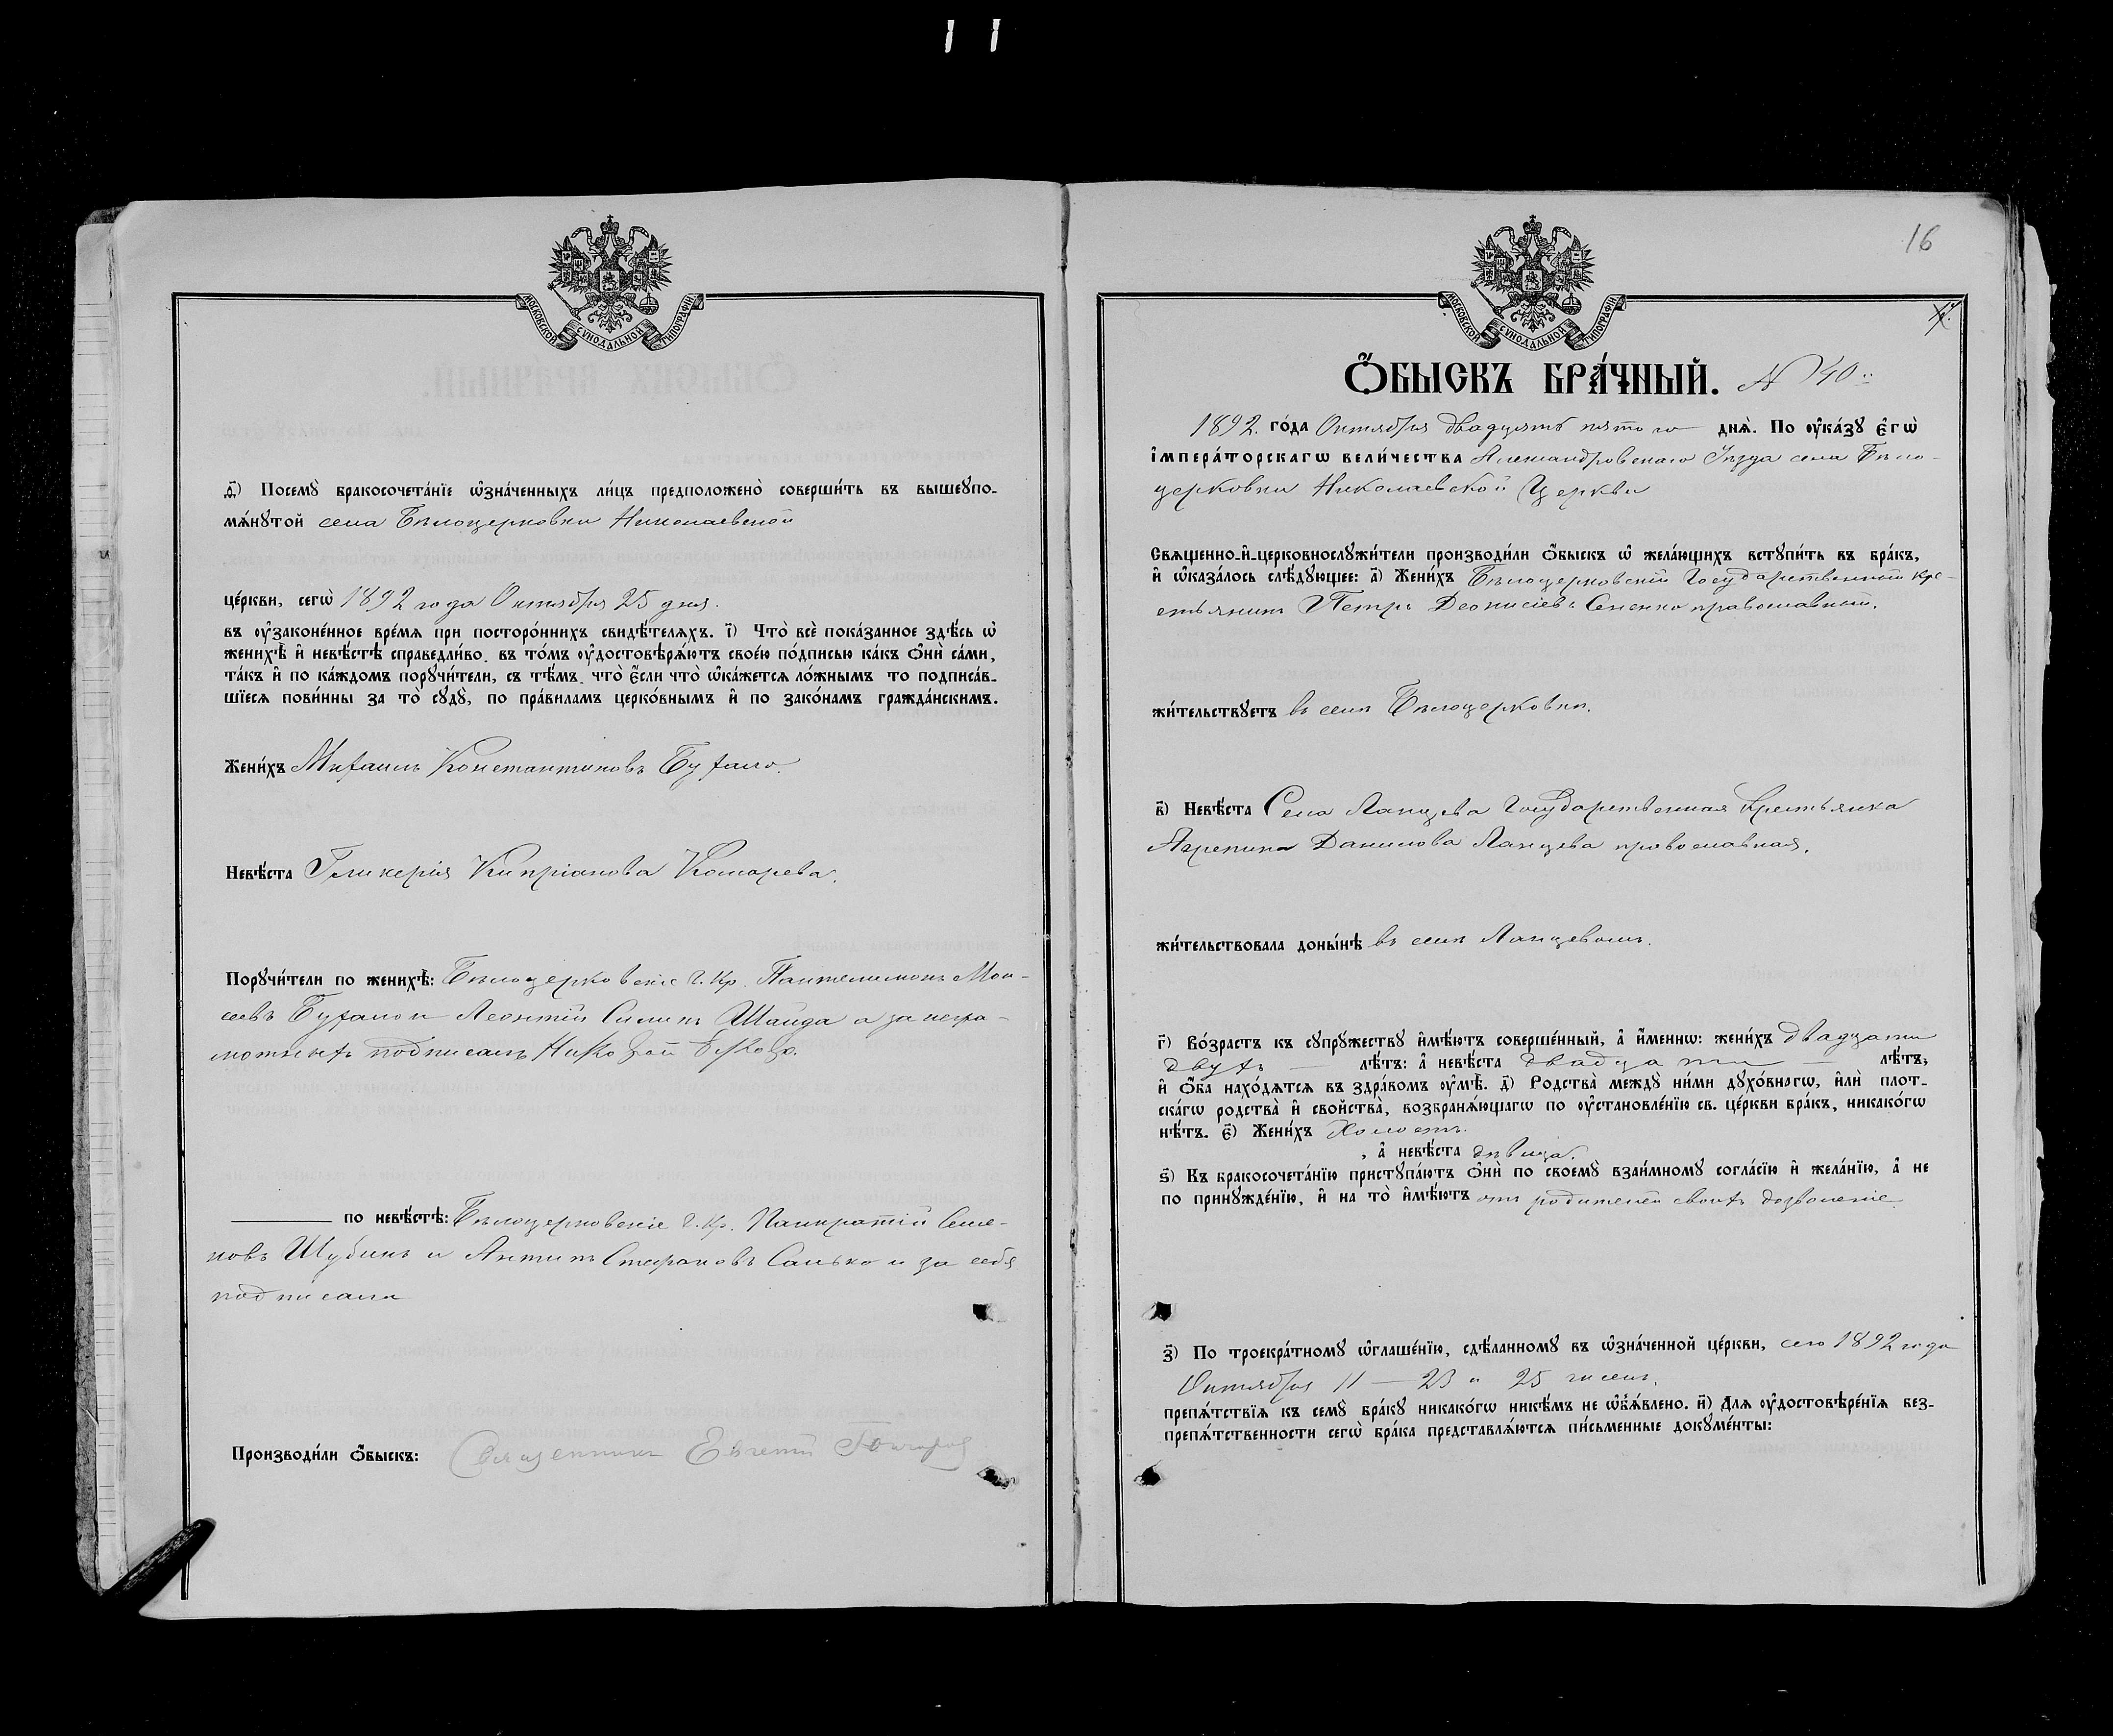 МОСКОВСКОЙ СѴНОДАЛЬНОЙ ТИПОГРАФІИ
д҃) Посемꙋ̀ бракосочета́нїе ѡ҆зна́ченныхъ ли́цъ предположено̀ соверши́ть въ вышеꙋпо-
мѧ́нꙋтой села Бѣлоцерковки Николаевской
це́ркви, сегѡ̀ 1892 года Октября 25 дня.
въ ᲂу҆законе́нное вре́мѧ при посторо́ннихъ свидѣ́телѧхъ. і҃) Что̀ всѐ пока́занное здѣ́сь ѡ҆
женихѣ̀ и҆ невѣ́стѣ справедли́во, въ то́мъ ᲂу҆достовѣрѧ́ютъ свое́ю по́дписью ка́къ ѻ҆нѝ са́ми,
та́къ и҆ по ка́ждомъ порꙋчи́тели, съ тѣ́мъ, что̀ є҆́сли что̀ ѡ҆ка́жетсѧ ло́жнымъ то подписа́в-
шїесѧ пови́нны за то̀ сꙋдꙋ̀, по пра́виламъ церко́внымъ и҆ по зако́намъ гражда́нскимъ.
Жени́хъ Михаилъ Константиновъ Бухало.
Невѣ́ста Гликерія Кипріанова Комарева.
Порꙋчи́тели по женихѣ̀: Бѣлоцерковскіе Г. Кр. Пантелимонъ Мои-
сеевъ Бухало и Леонтій Силинъ Шайда а за негра-
мотныхъ подписалъ
по невѣ́стѣ: Бѣлоцерковскіе Г. Кр. Панкратій Семе-
новъ Шубинъ и Антипъ Стефановъ Салько и за себя
подписали
Производи́ли ѻ҆́быскъ: Священникъ Евгеній
16
МОСКОВСКОЙ СѴНОДАЛЬНОЙ ТИПОГРАФІИ
Ѻ҆́БЫСКЪ БРА́ЧНЫЙ. N 40
1892. го́да Октября двадцять пятого днѧ̀. По ᲂу҆ка́зꙋ є҆гѡ̀
і҆мпера́торскагѡ вели́чества Александровскаго Уѣзда села Бѣло-
церковки Николаевской Церкви
Свѧще́нно-и҆-церковнослꙋжи́тели производи́ли ѻ҆́быскъ ѡ҆ жела́ющихъ встꙋпи́ть въ бра́къ,
и҆ ѡ҆каза́лось слѣ́дꙋющее: а҃) Жени́хъ Бѣлоцерковскій Государственный кре-
стьянинъ Петръ Деонисіевъ Сененко православный.
жи́тельствꙋетъ въ селѣ Бѣлоцерковки.
в҃) Невѣ́ста Села Ланцева Государственная Крестьянка
Агрепина Данилова Ланцева православная.
жи́тельствовала доны́нѣ въ селѣ Ланцевомъ.
г҃) Во́зрастъ къ сꙋпрꙋ́жествꙋ и҆мѣ́ютъ соверше́нный, а҆ и҆́меннѡ: жени́хъ двадцати
двухъ лѣ́тъ: а҆ невѣ́ста двадцати лѣ́тъ,
и҆ ѻ҆́ба нахо́дѧтсѧ въ здра́вомъ ᲂу҆мѣ̀. д҃) Родства̀ междꙋ̀ ни́ми дꙋхо́внагѡ, и҆лѝ плот-
ска́гѡ родства̀ и҆ свойства̀, возбранѧ́ющагѡ по ᲂу҆становле́нїю св. це́ркви бра́къ, никако́гѡ
нѣ́тъ. є҃) Жени́хъ холостъ.
, а҆ невѣ́ста дѣвица.
ѕ҃) Къ бракосочета́нїю пристꙋпа́ютъ ѻ҆нѝ по своемꙋ̀ взаи́мномꙋ согла́сїю и҆ жела́нїю, а҆ не
по принꙋжде́нїю, и҆ на то̀ и҆мѣ́ютъ отъ родителей своихъ дозволеніе.
з҃) По троекра́тномꙋ ѡ҆глаше́нїю, сдѣ́ланномꙋ въ ѡ҆зна́ченной це́ркви, сего 1892 года
Октября 11 — 23 и 25 чиселъ.
препѧ́тствїѧ къ семꙋ̀ бра́кꙋ никако́гѡ никѣ́мъ не ѡ҆б̾ѧ́влено. и҃) Длѧ ᲂу҆достовѣре́нїѧ без-
препѧ́тственности сегѡ̀ бра́ка представлѧ́ютсѧ пи́сьменные докꙋме́нты: